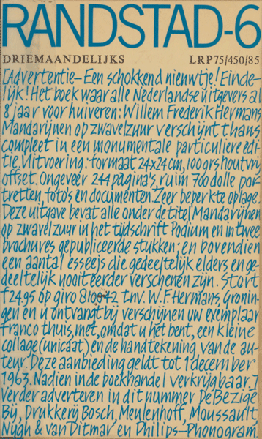 RANDSTAD-6
DRIEMAANDELIJKS LRP75/450/85
(Advertentie - Een schokkend nieuwtje! Einde-
lijk! Het boek waar alle Nederlandse uitgevers al
8 jaar voor huiveren: Willem Frederik Hermans
Mandarijnen op zwavelzuur verschijnt thans
compleet in een monumentale particuliere edi-
tie. Uitvoering: formaat 24x24 cm, 100 grs houtvry
offset. Ongeveer 244 pagina's, ruim 760 dolle por-
tretten, foto's en documenten. Zeer beperkte oplage.
Deze uitgave bevat alle onder de titel Mandarijnen
op zwavelzuur in het tijdschrift Podium en in twee
brochures gepubliceerde stukken; en bovendien
een aantal essejs die gedeeltelijk elders en ge-
deeltelijk nooit eerder verschenen zijn. Stort
f 24,95 op giro t.n.v. W.F. Hermans, Gronin-
gen en u ontvangt bij verschijnen uw exemplaar
franco thuis, met, omdat u het bent, een kleine
collage (unicaat) en de handtekening van de au-
teur. Deze aanbieding geldt tot 1 december
1963. Nadien in de boekhandel verkrijgbaar.)
Verder adverteren in dit nummer De Bezige
Bij, Drukkerij Bosch, Meulenhoff, Moussault,
Nijgh & van Ditmar en Philips-Phonogram.